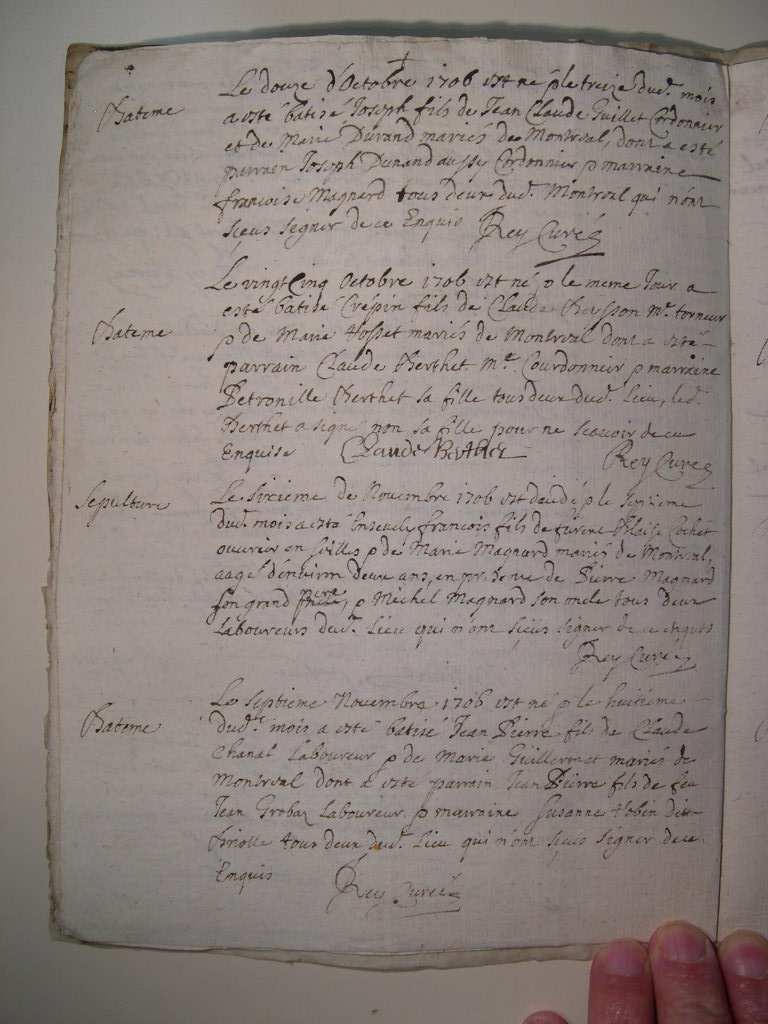 Bateme
Le douze d'Octobre 1706 est né & le treize dud. mois
a esté batisé Joseph fils de Jean Claude Guillet Cordonnier
et de Marie Durand mariés de Montrval, dont a esté
parrain Joseph Durand aussy Cordonnier & marraine
francoise Magnard tous deux dud. Montrval qui n'ont
sceus signer de ce Enquis Rey Curé
Bateme
Le vingt Cinq Octobre 1706 est né & le meme Jour a
esté batisé Crespin fils de Claude Beysson Me. torneur
& de Marie Hosset mariés de Montrval dont a esté
parrain Claude Berthet Me. Courdonnier & marraine
Petronille Berthet sa fille tous deux dud. Lieu, led.
Berthet a signé non sa fille pour ne scavoir de ce
Enquise Claude Berthet Rey Curé
Sepulture
Le sixieme de Novembre 1706 est decedé & le septieme
dud. mois a esté Enseveli francois fils de Blaise Cochet
ouvrier en & de Marie Magnard mariés de Montrval,
aagé d'environ deux ans, en presence de Pierre Magnard
son grand Pere, & Michel Magnard son oncle tous deux
Laboureurs dud. Lieu qui n'ont sçeus signer de ce enquis
Rey Curé
Bateme
Le septieme Novembre 1706 est né & le huitieme
dud. mois a esté batisé Jean Pierre fils de Claude
Chanal Laboureur & de Marie Guillermet mariés de
Montrval dont a esté parrain Jean Pierre fils de feu
Jean Grobaz Laboureur & marraine Susanne Hobin dit
tous deux dud. Lieu qui n'ont sçeus signer de ce
Enquis Rey Curé